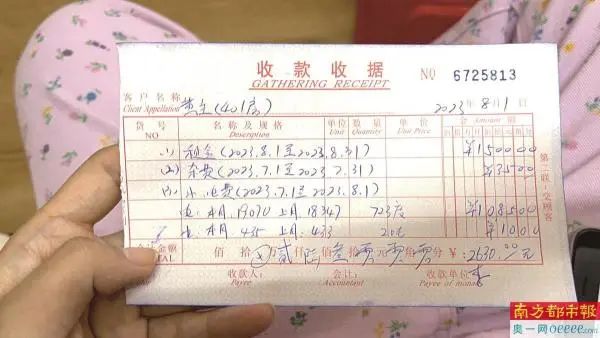 收款收据
GATHERING RECEIPT
NO 6725813
客户名称 (401房)
Client Appellation
2023年8月1
货号 名称及规格 单位 数量 单价 金 Amount 额
NO Description Unit Quantity Unit Price
(1) 租金(2023.8.1至2023.8.31) ¥150000
(2) 杂费(2023.7.1至2023.7.31) ¥3500
(3) 水.电费(2023.7.1至2023.8.1)
电.本月 19070 上月 18347 723度 ¥108500
本月 435 上月 433 ¥1000
金额 佰 拾 万贰仟陆佰叁拾零元零角零分 ¥:2630.00元
TOTAL
收款人: 会计: 收款单位:
Payee Accountant Payee of monad
第二联:交顾客
南方都市报
奥一网oeeee.com